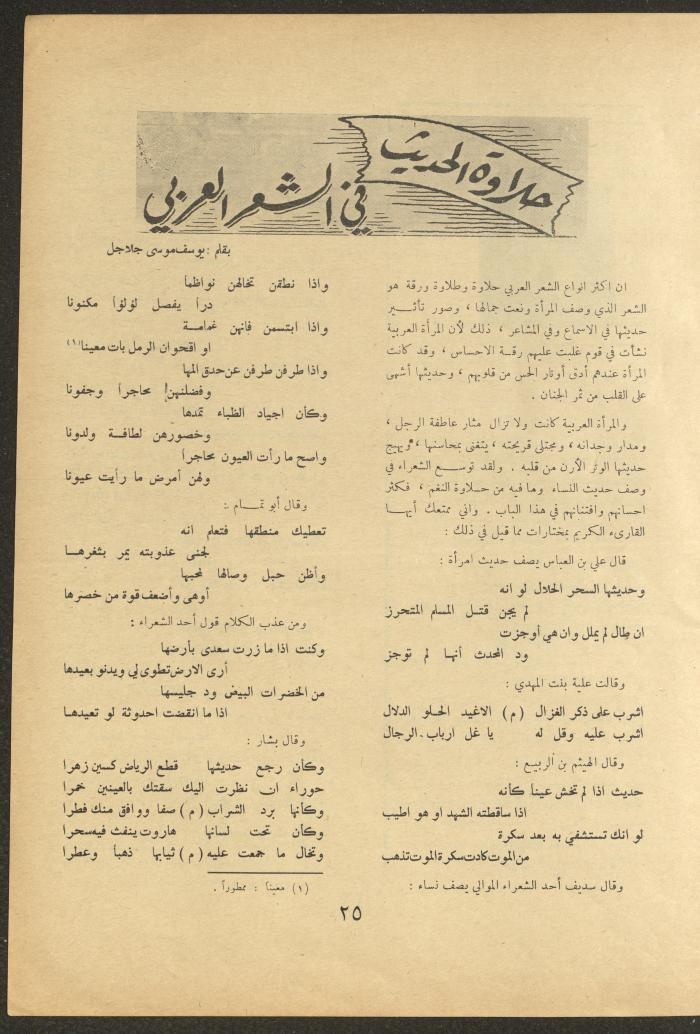 حلاوة الحديث
في الشعر العربي
بقلم : يوسف موسى جلاجل
ان اكثر انواع الشعر العربي حلاوة وطلاوة ورقة هو
الشعر الذي وصف المرأة ونعت جمالها ، وصور تأثـــير
حديثها في الاسماع وفي المشاعر ، ذلك لأن المرأة العربية
نشأت في قوم غلبت عليهم رقـة الاحساس ، وقد كانت
المرأة عندهم أدق أوتار الحس من قلوبهم ، وحديثها أشهى
على القلب من ثمر الجنان .
والمرأة العربية كانت ولا تزال مثار عاطفة الرجل ،
ومدار وجدانه ، ومجتلى قريحته ، يتغنى بمحاسنها ، ويهيج
حديثها الوتر الأرن من قلبه . ولقد توســـع الشعراء في
وصف حديث النساء وما فيه من حــلاوة النغم ، فكثر
احسانهم وافتنانهم في هذا الباب . واني ممتعك أيهـــا
القارىء الكريم بمختارات مما قيل في ذلك :
قال علي بن العباس يصف حديث امرأة :
وحديثها السحر الحلال لو انه
لم يجن قتــل المسلم المتحرز
ان طال لم يملل وان هي أوجزت
ود المحدث أنهـا لم توجز
وقالت علية بنت المهدي :
اشرب على ذكر الغزال ( م ) الاغيد الحـلو الدلال
اشرب عليه وقل له يا غل ارباب الرجال
وقال الهيثم بن الربيع :
حديث اذا لم تخش عيناً كأنه
اذا ساقطته الشهد او هو اطيب
لو انك تستشفي به بعد سكرة
من الموت كادت سكرة الموت تذهب
وقال سديف أحد الشعراء الموالي يصف نساء :
واذا نطقن تخالهن نواظماً
دراً يفصل لؤلؤاً مكنونا
واذا ابتسمن فانهن غمامـــة
او اقحوان الرمل بات معينا (١)
واذا طرفن طرفن عن حدق المها
وفضلنهن محاجراً وجفونا
وكأن اجياد الظباء تمدها
وخصورهن لطافـــة ولدونا
واصح ما رأت العيون محاجراً
ولهن أمرض ما رأيت عيونا
وقال أبو تمـــام :
تعطيك منطقها فتعلم انه
لجنى عذوبته يمر بثغرهـــا
وأظن حبل وصالها لمحبها
أوهى وأضعف قوة من خصرها
ومن عذب الكلام قول أحد الشعراء :
وكنت اذا ما زرت سعدى بأرضها
أرى الارض تطوى لي ويدنو بعيدها
من الخفرات البيض ود جليسها
اذا ما انقضت احدوثة لو تعيدهـا
وقال بشار :
وكأن رجع حديثها قطع الرياض كسين زهرا
حوراء ان نظرت اليك سقتك بالعينين خمرا
وكأنها برد الشراب ( م ) صفا ووافق منك فطرا
وكأن تحت لسانها هاروت ينفث فيه سحرا
وتخال ما جمعت عليه ( م ) ثيابها ذهباً وعطرا
(١) معيناً : ممطوراً .
٢٥